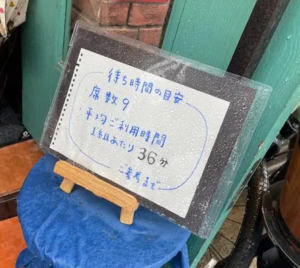 待ち時間の目安
席数 9
平均ご利用時間
1組あたり 36分
ご参考まで